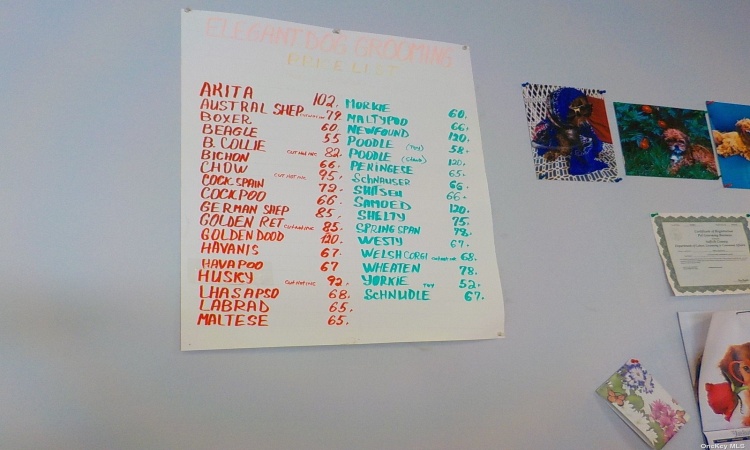 ELEGANT DOG GROOMING
PRICE LIST
AKITA 102.
AUSTRAL SHEP 79.
BOXER 60.
BEAGLE 55
B. COLLIE CUT NOT INC 82.
BICHON 66.
CHOW CUT NOT INC 95.
COCK SPAIN 72.
COCKPOO 66.
GERMAN SHEP 85.
GOLDEN RET CUT NOT INC 85.
GOLDEN DOOD 120.
HAVANIS 67.
HAVAPOO 67
HUSKY CUT NOT INC 92.
LHASAPSO 68.
LABRAD 65.
MALTESE 65.
MORKIE 60.
MALTYPOO 66.
NEWFOUND 120.
POODLE (TOY) 58.
POODLE 120.
PERINGESE 65.
SCHNAUSER 66.
SHITSEU 66.
SAMOED 120.
SHELTY 75.
SPRING SPAN 78.
WESTY 67.
WELSH CORGI 68.
WHEATEN 78.
YORKIE TOY 52.
SCHNUDLE 67.
Certificate of Registration
OneKey MLS